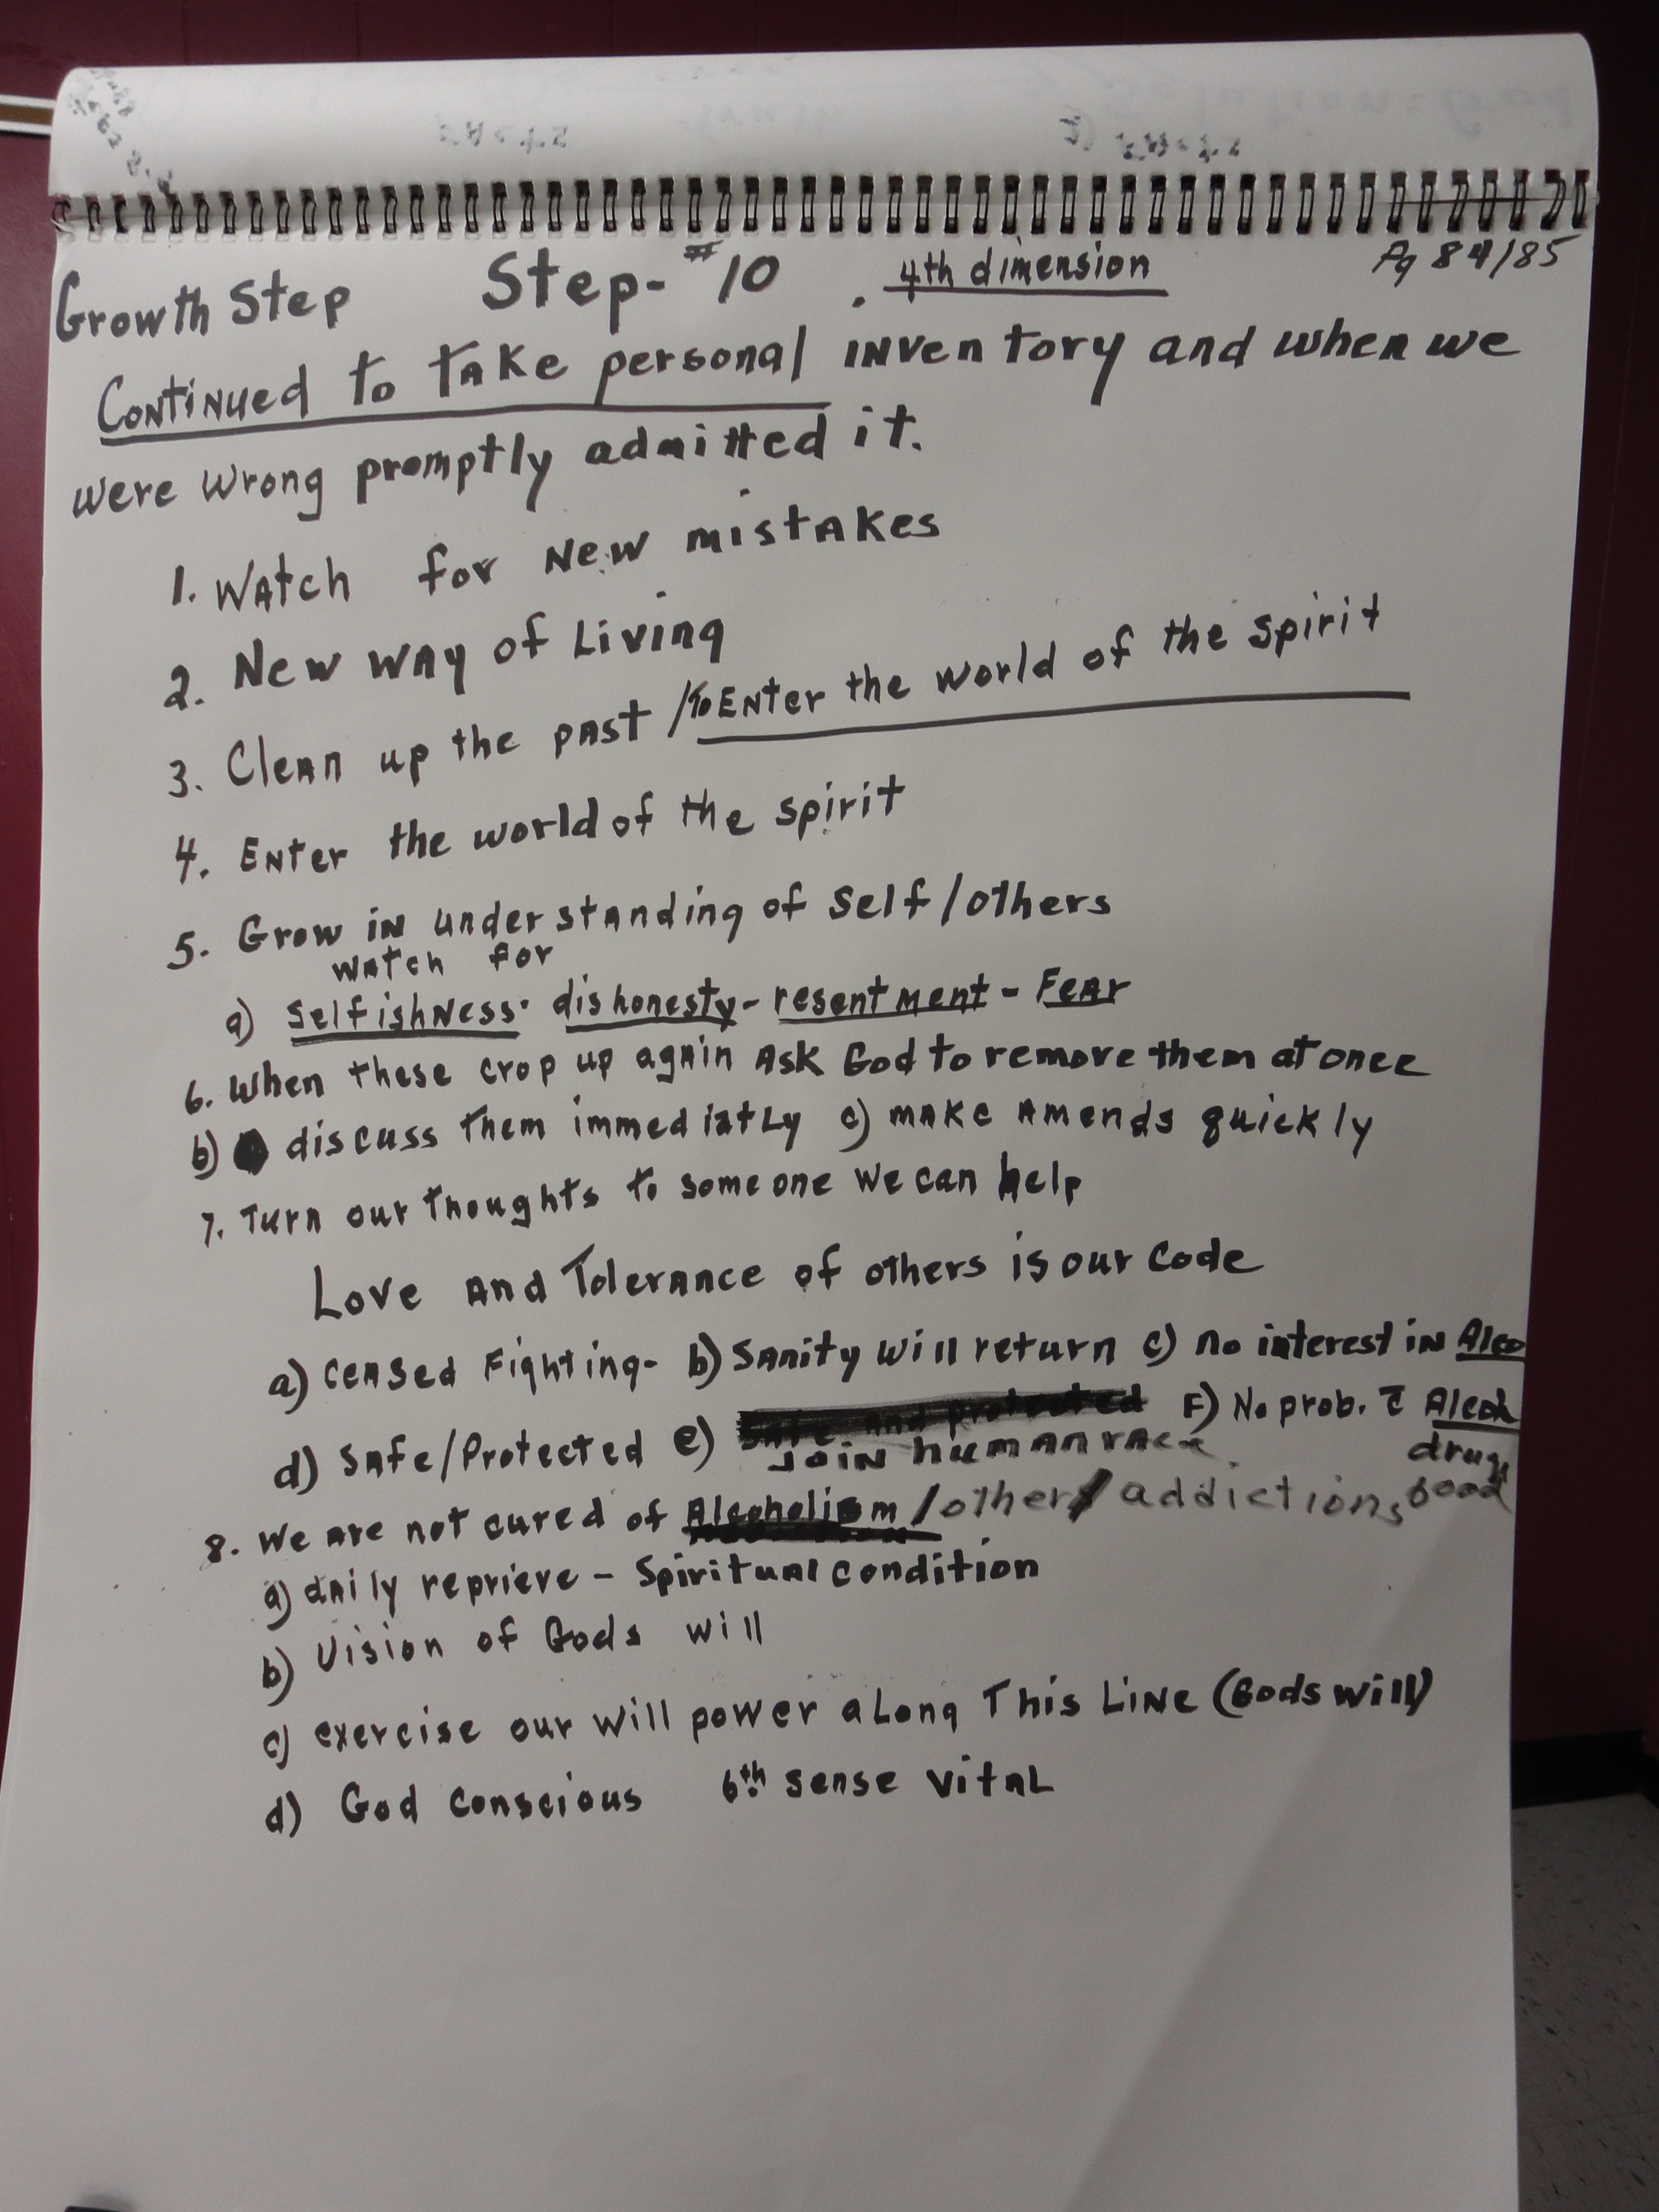 Growth Step Step-#10 . 4th dimension Pg 84/85
Continued to take personal inventory and when we
were wrong promptly admitted it.
1. Watch for New mistakes
2. New way of Living
3. Clean up the past / To Enter the world of the spirit
4. Enter the world of the spirit
5. Grow in understanding of Self/others
watch for
a) Selfishness - dishonesty - resentment - Fear
6. When these crop up again Ask God to remove them at once
b) discuss them immediatly c) make Amends quickly
7. Turn our thoughts to someone we can help
Love and Tolerance of others is our Code
a) ceased Fighting - b) Sanity will return c) no interest in Alco
d) Safe/Protected e) Safe and protected F) No prob. c̄ Alcoh
Join human race drugs
8. We are not cured of Alcoholism /other/ addictions food
a) daily reprieve - Spiritual condition
b) Vision of Gods will
c) exercise our will power along This Line (Gods will)
d) God conscious 6th sense vital